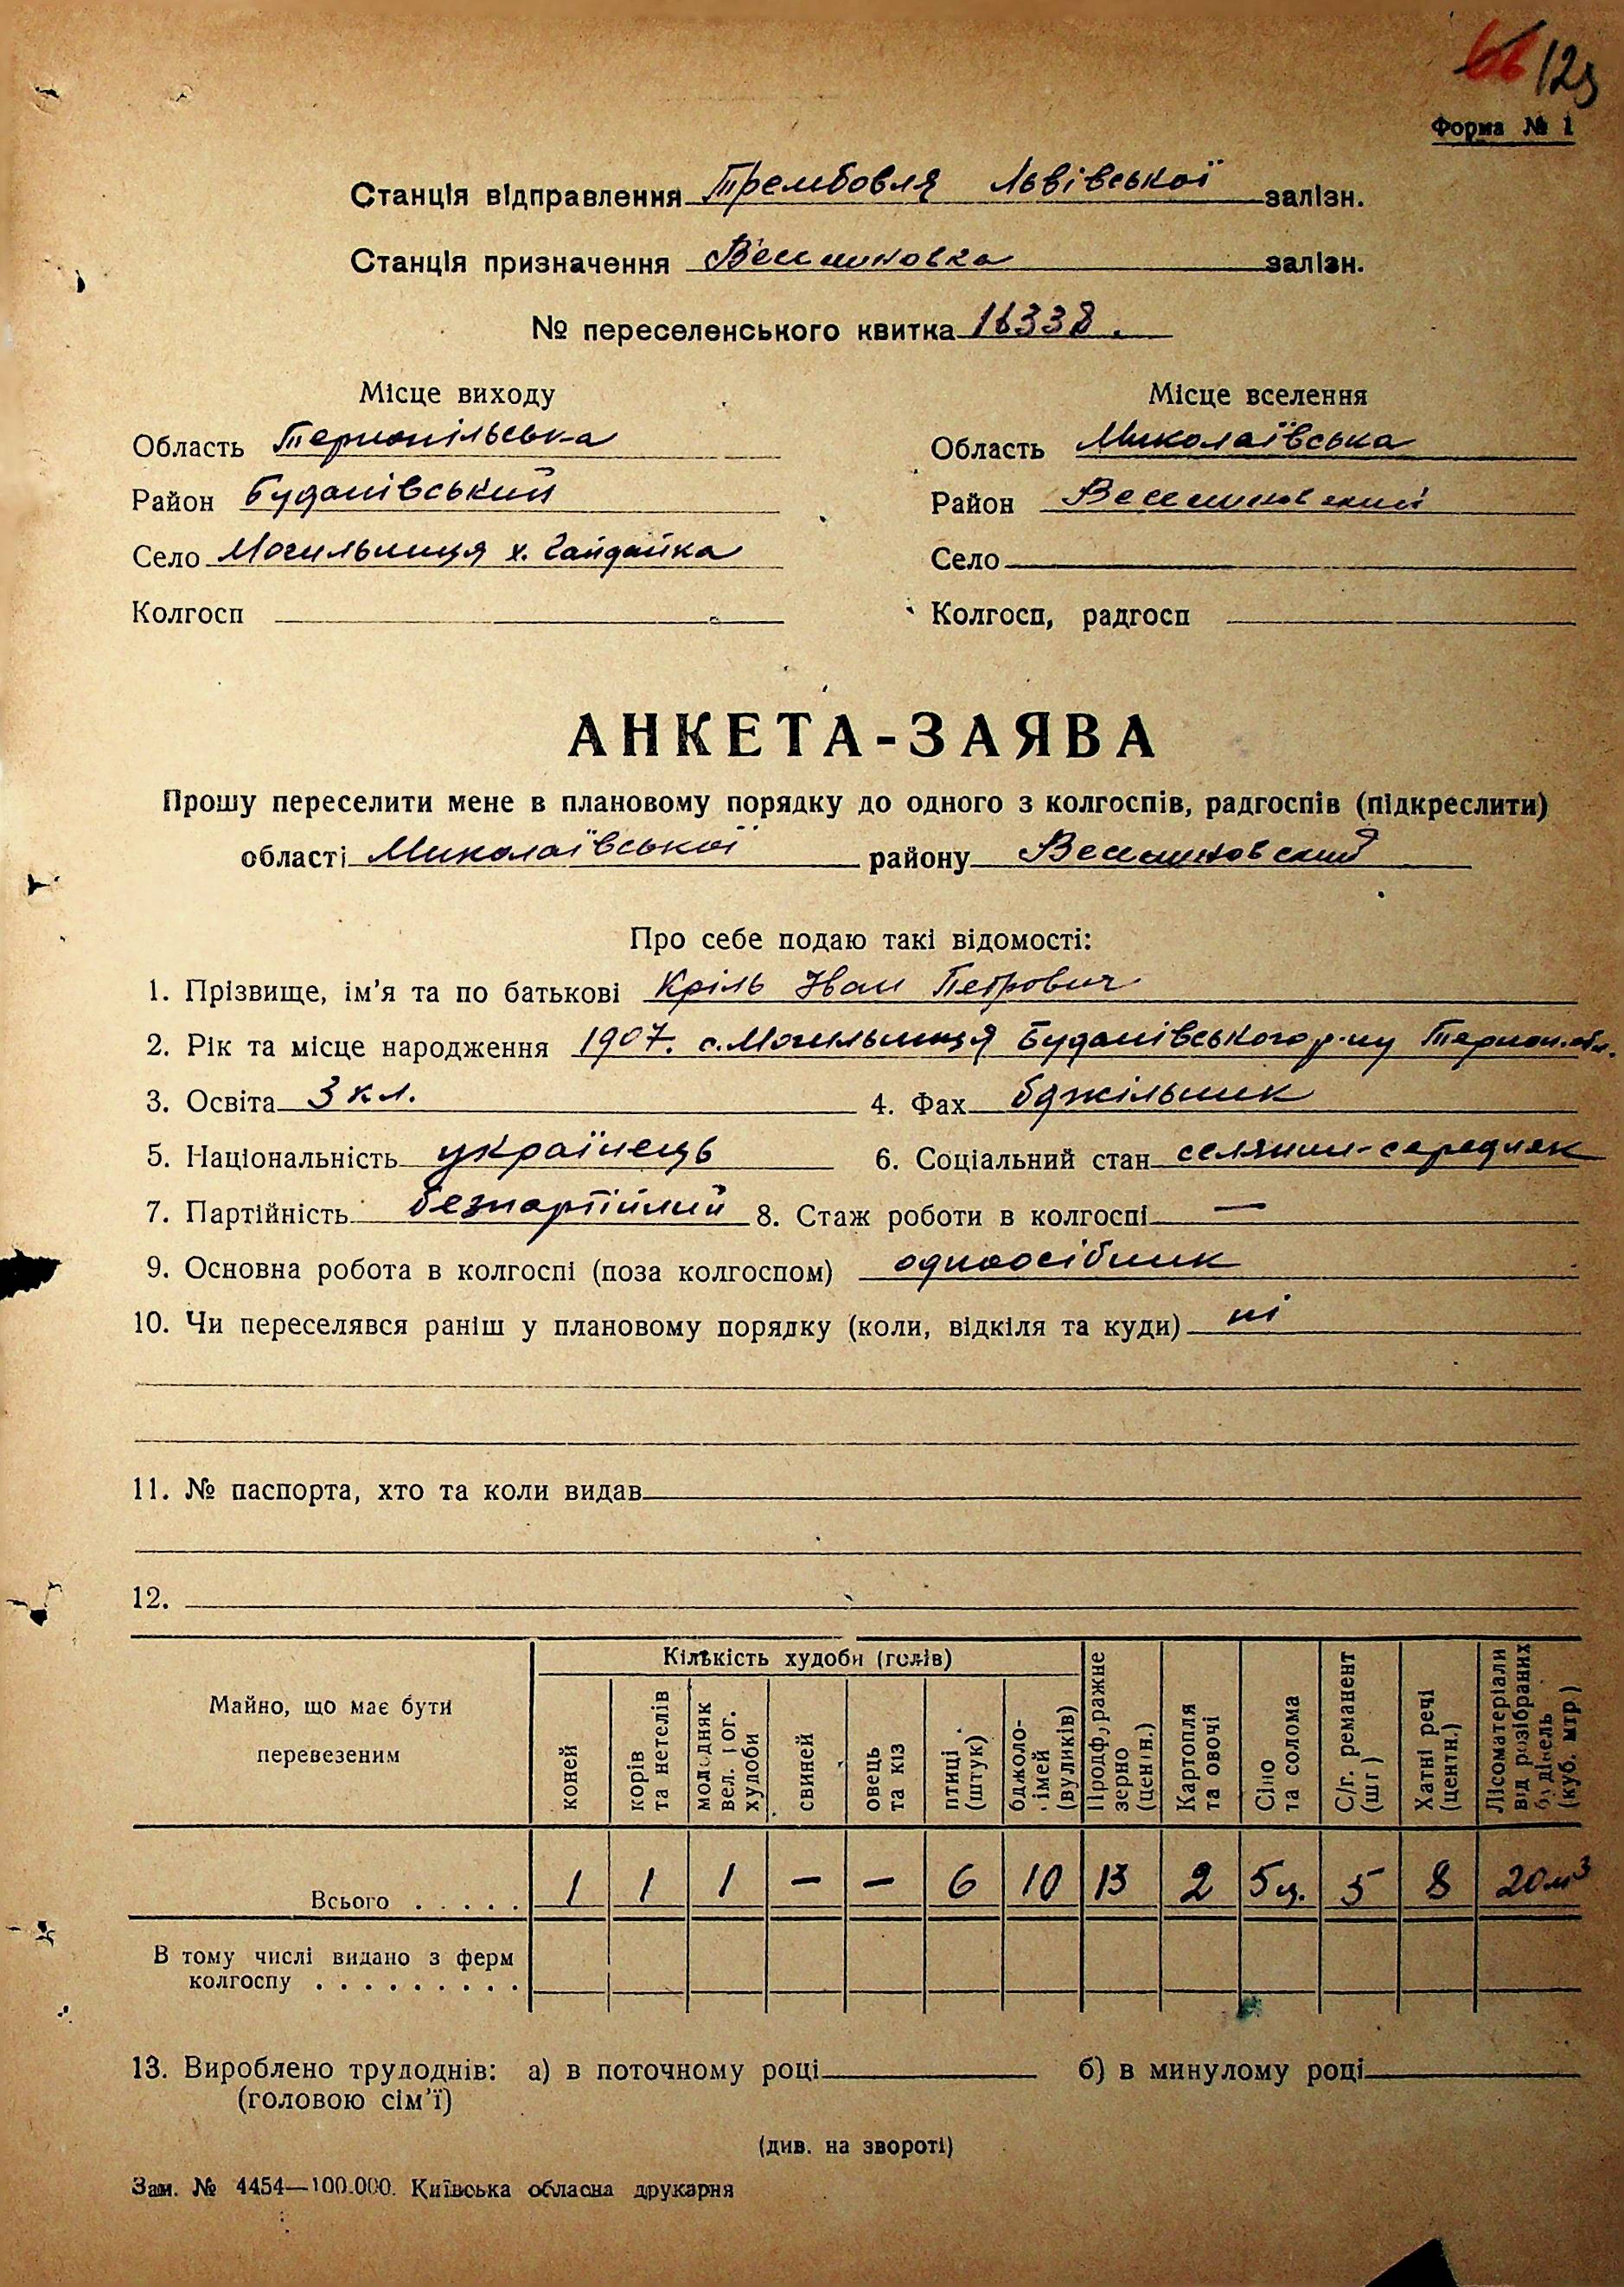 66 125
Форма № 1
Станція відправлення Трембовля Львівської залізн.
Станція призначення Веселиновка залізн.
№ переселенського квитка 16338.
Місце виходу Місце вселення
Область Тернопільська Область Миколаївська
Район Буданівський Район Веселиновский
Село Могильниця х. Гайдайка Село
Колгосп Колгосп, радгосп
АНКЕТА-ЗАЯВА
Прошу переселити мене в плановому порядку до одного з колгоспів, радгоспів (підкреслити)
області Миколаївської району Веселиновский
Про себе подаю такі відомості:
1. Прізвище, ім'я та по батькові Кріль Іван Петрович
2. Рік та місце народження 1907. с. Могильниця Буданівського р-ну Терноп. обл.
3. Освіта 3 кл. 4. Фах бджільник
5. Національність українець 6. Соціальний стан селянин-середняк
7. Партійність безпартійний 8. Стаж роботи в колгоспі —
9. Основна робота в колгоспі (поза колгоспом) одноосібник
10. Чи переселявся раніш у плановому порядку (коли, відкіля та куди) ні
11. № паспорта, хто та коли видав
12.
Майно, що має бути перевезеним
Кількість худоби (голів)
коней
корів та нетелів
молодняк вел. рог. худоби
свиней
овець та кіз
птиці (штук)
бджоло-імей (вуликів)
Продф, ражне зерно (центн.)
Картопля та овочі
Сіно та солома
С/г. реманент (шт)
Хатні речі (центн.)
Лісоматеріали від розібраних будівель (куб. мтр)
Всього . . . . . 1 1 1 — — 6 10 13 2 5 ц. 5 8 20 м³
В тому числі видано з ферм
колгоспу . . . . . . . . .
13. Вироблено трудоднів: а) в поточному році б) в минулому році
(головою сім'ї)
(див. на звороті)
Зам. № 4454—100.000. Київська обласна друкарня